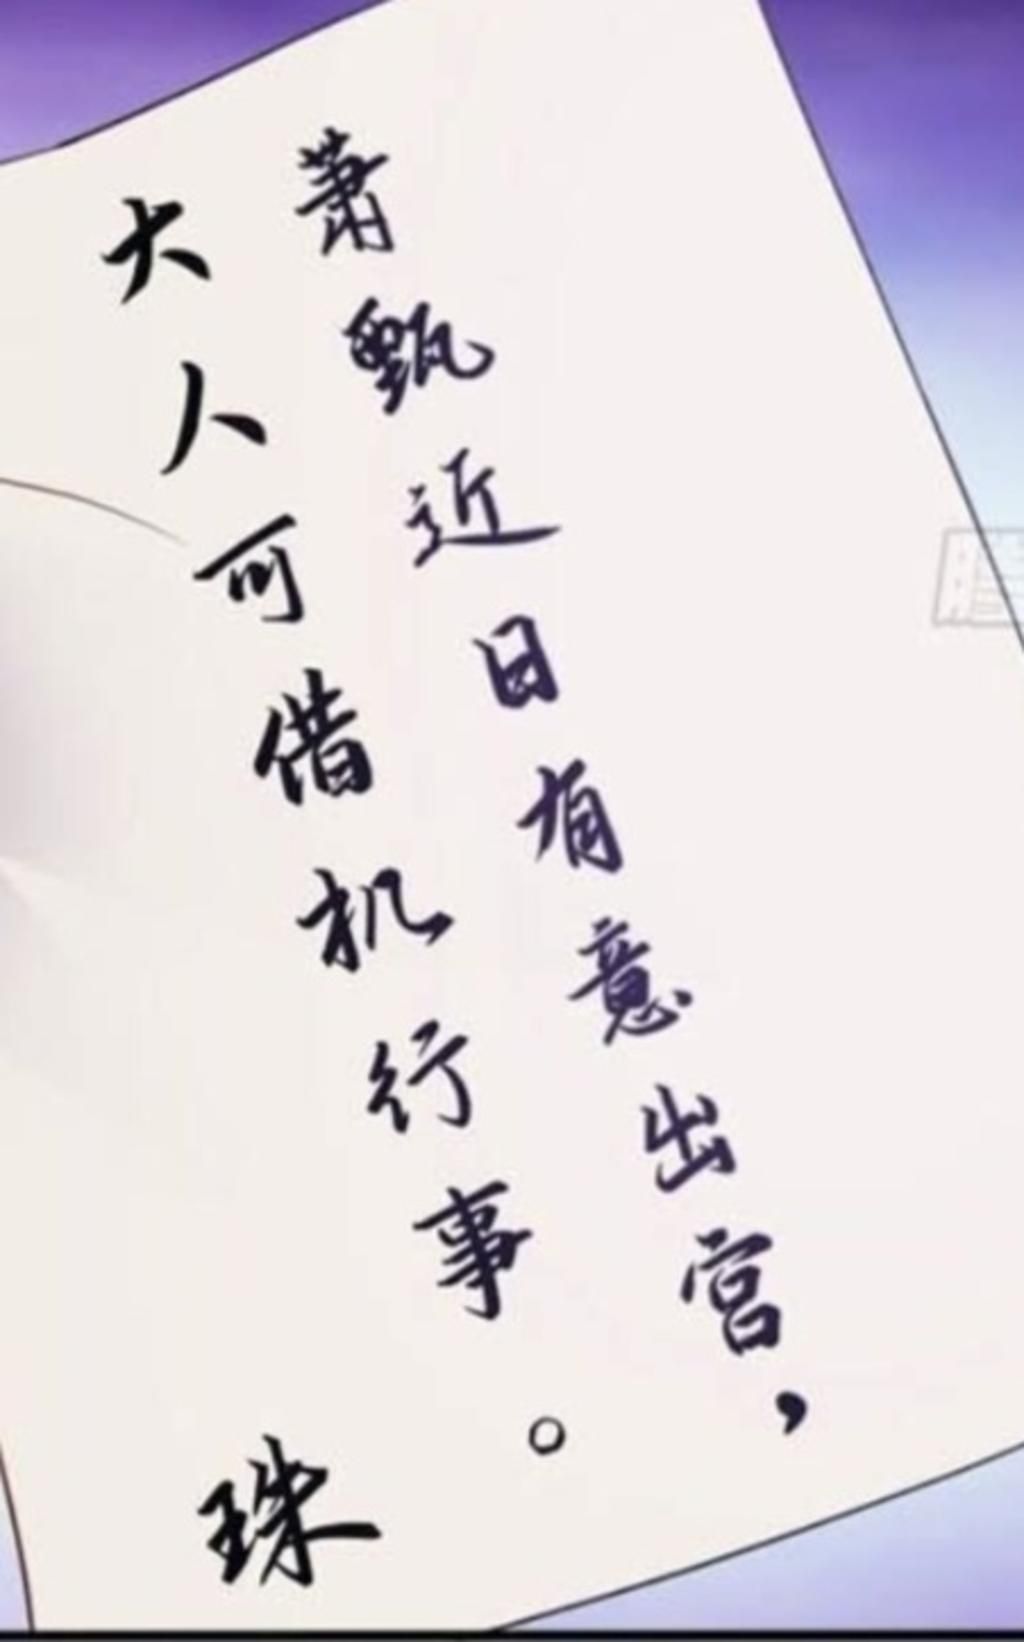 萧甄近日有意出宫，
大人可借机行事。
珠